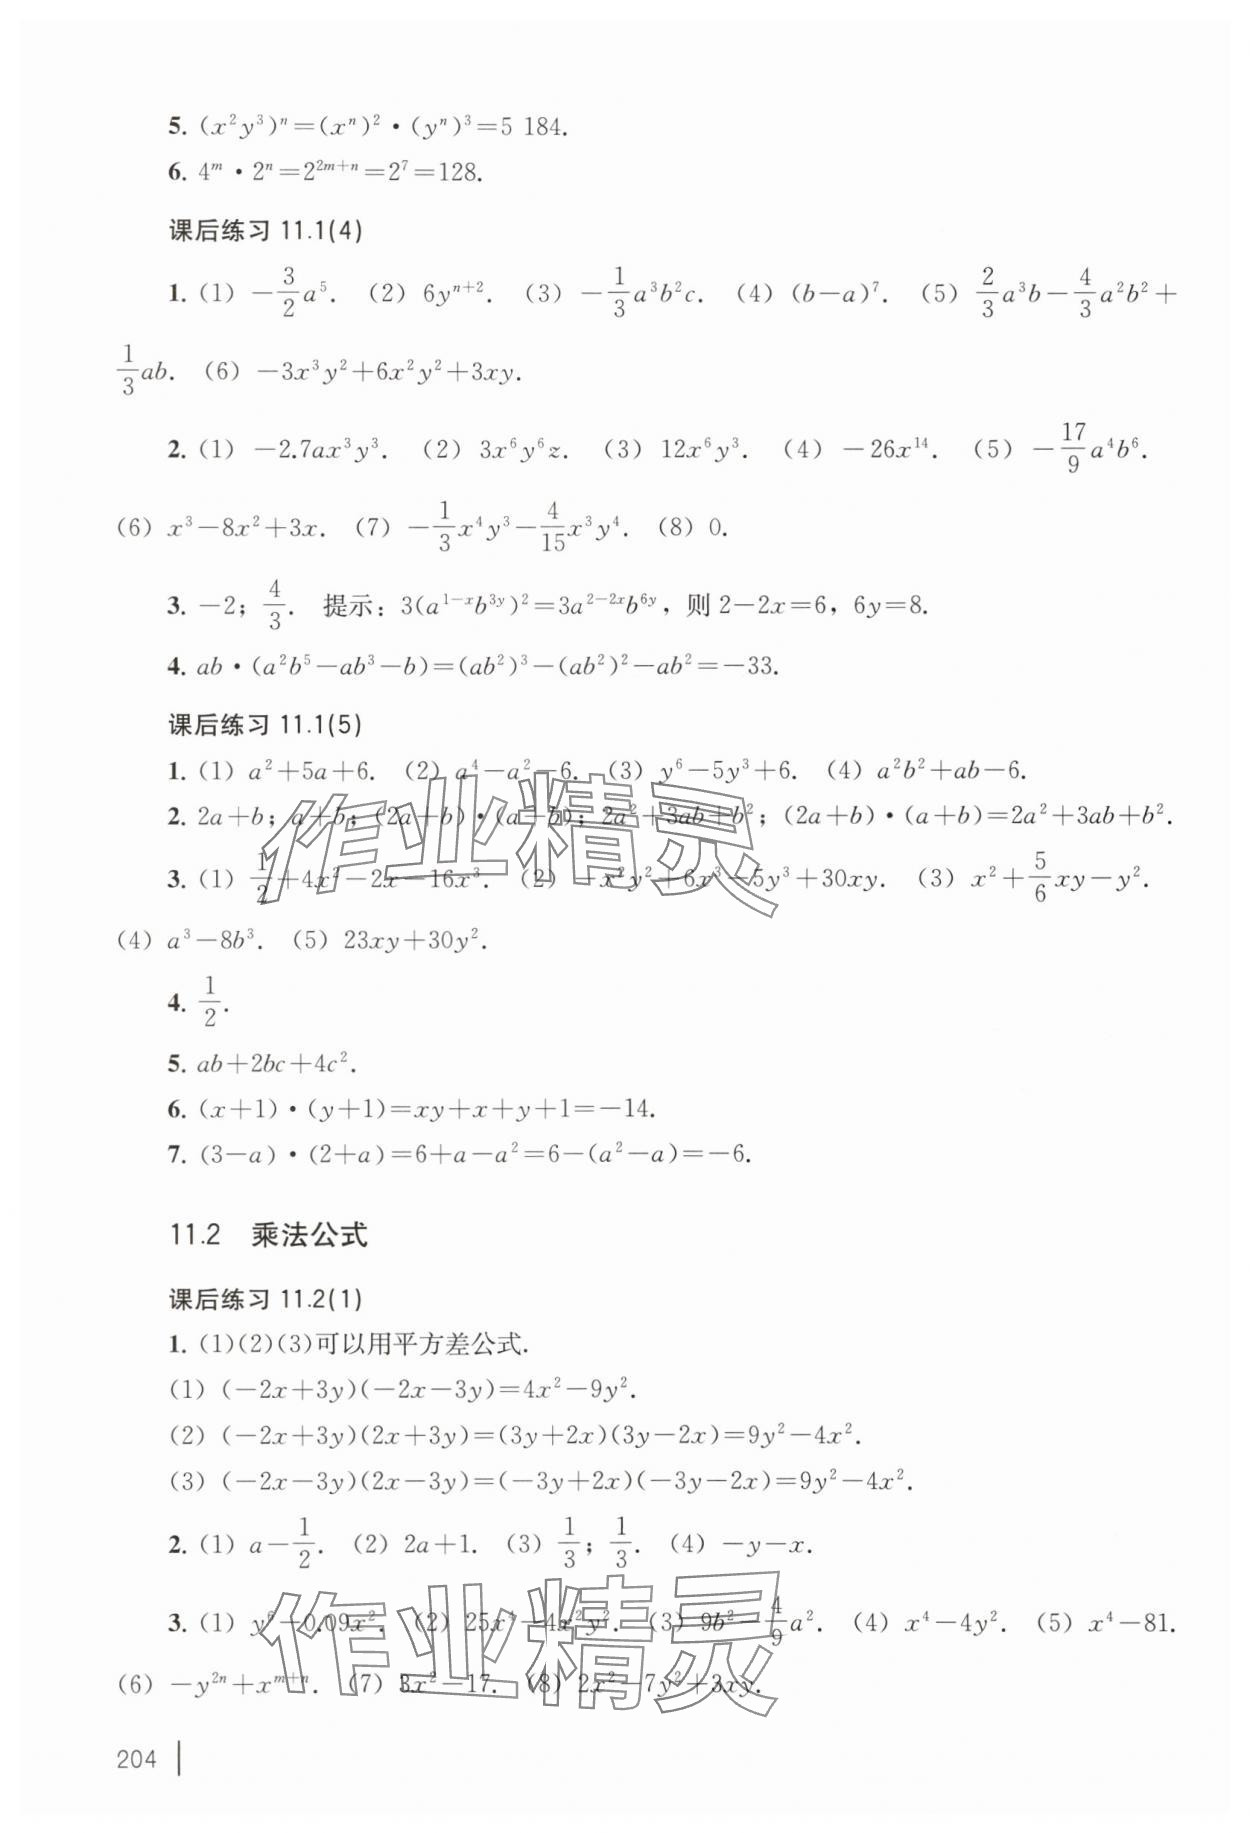 5. (x²y³)ⁿ=(xⁿ)²·(yⁿ)³=5 184.
6. 4ᵐ·2ⁿ=2²ᵐ⁺ⁿ=2⁷=128.
课后练习 11.1(4)
1. (1) -3/2a⁵. (2) 6yⁿ⁺². (3) -1/3a³b²c. (4) (b-a)⁷. (5) 2/3a³b-4/3a²b²+
1/3ab. (6) -3x³y²+6x²y²+3xy.
2. (1) -2.7ax³y³. (2) 3x⁶y⁶z. (3) 12x⁶y³. (4) -26x¹⁴. (5) -17/9a⁴b⁶.
(6) x³-8x²+3x. (7) -1/3x⁴y³-4/15x³y⁴. (8) 0.
3. -2; 4/3. 提示: 3(a^(1-x)b^(3y))²=3a^(2-2x)b^(6y), 则 2-2x=6, 6y=8.
4. ab·(a²b⁵-ab³-b)=(ab²)³-(ab²)²-ab²=-33.
课后练习 11.1(5)
1. (1) a²+5a+6. (2) a⁴-a²-6. (3) y⁶-5y³+6. (4) a²b²+ab-6.
2. 2a+b; a+b; (2a+b)·(a+b); 2a²+3ab+b²; (2a+b)·(a+b)=2a²+3ab+b².
3. (1) 1/2+4x²-2x-16x³. (2) -x²y²+6x³-5y³+30xy. (3) x²+5/6xy-y².
(4) a³-8b³. (5) 23xy+30y².
4. 1/2.
5. ab+2bc+4c².
6. (x+1)·(y+1)=xy+x+y+1=-14.
7. (3-a)·(2+a)=6+a-a²=6-(a²-a)=-6.
11.2 乘法公式
课后练习 11.2(1)
1. (1)(2)(3)可以用平方差公式.
(1) (-2x+3y)(-2x-3y)=4x²-9y².
(2) (-2x+3y)(2x+3y)=(3y+2x)(3y-2x)=9y²-4x².
(3) (-2x-3y)(2x-3y)=(-3y+2x)(-3y-2x)=9y²-4x².
2. (1) a-1/2. (2) 2a+1. (3) 1/3; 1/3. (4) -y-x.
3. (1) -0.09x². (2) 25x⁴-4x²y². (3) 9b²-4/9a². (4) x⁴-4y². (5) x⁴-81.
(6) -y²ⁿ+xᵐ⁺ⁿ. (7) 3x²-17. (8) 2x²-7y²+3xy.
204
作业精灵
作业精灵